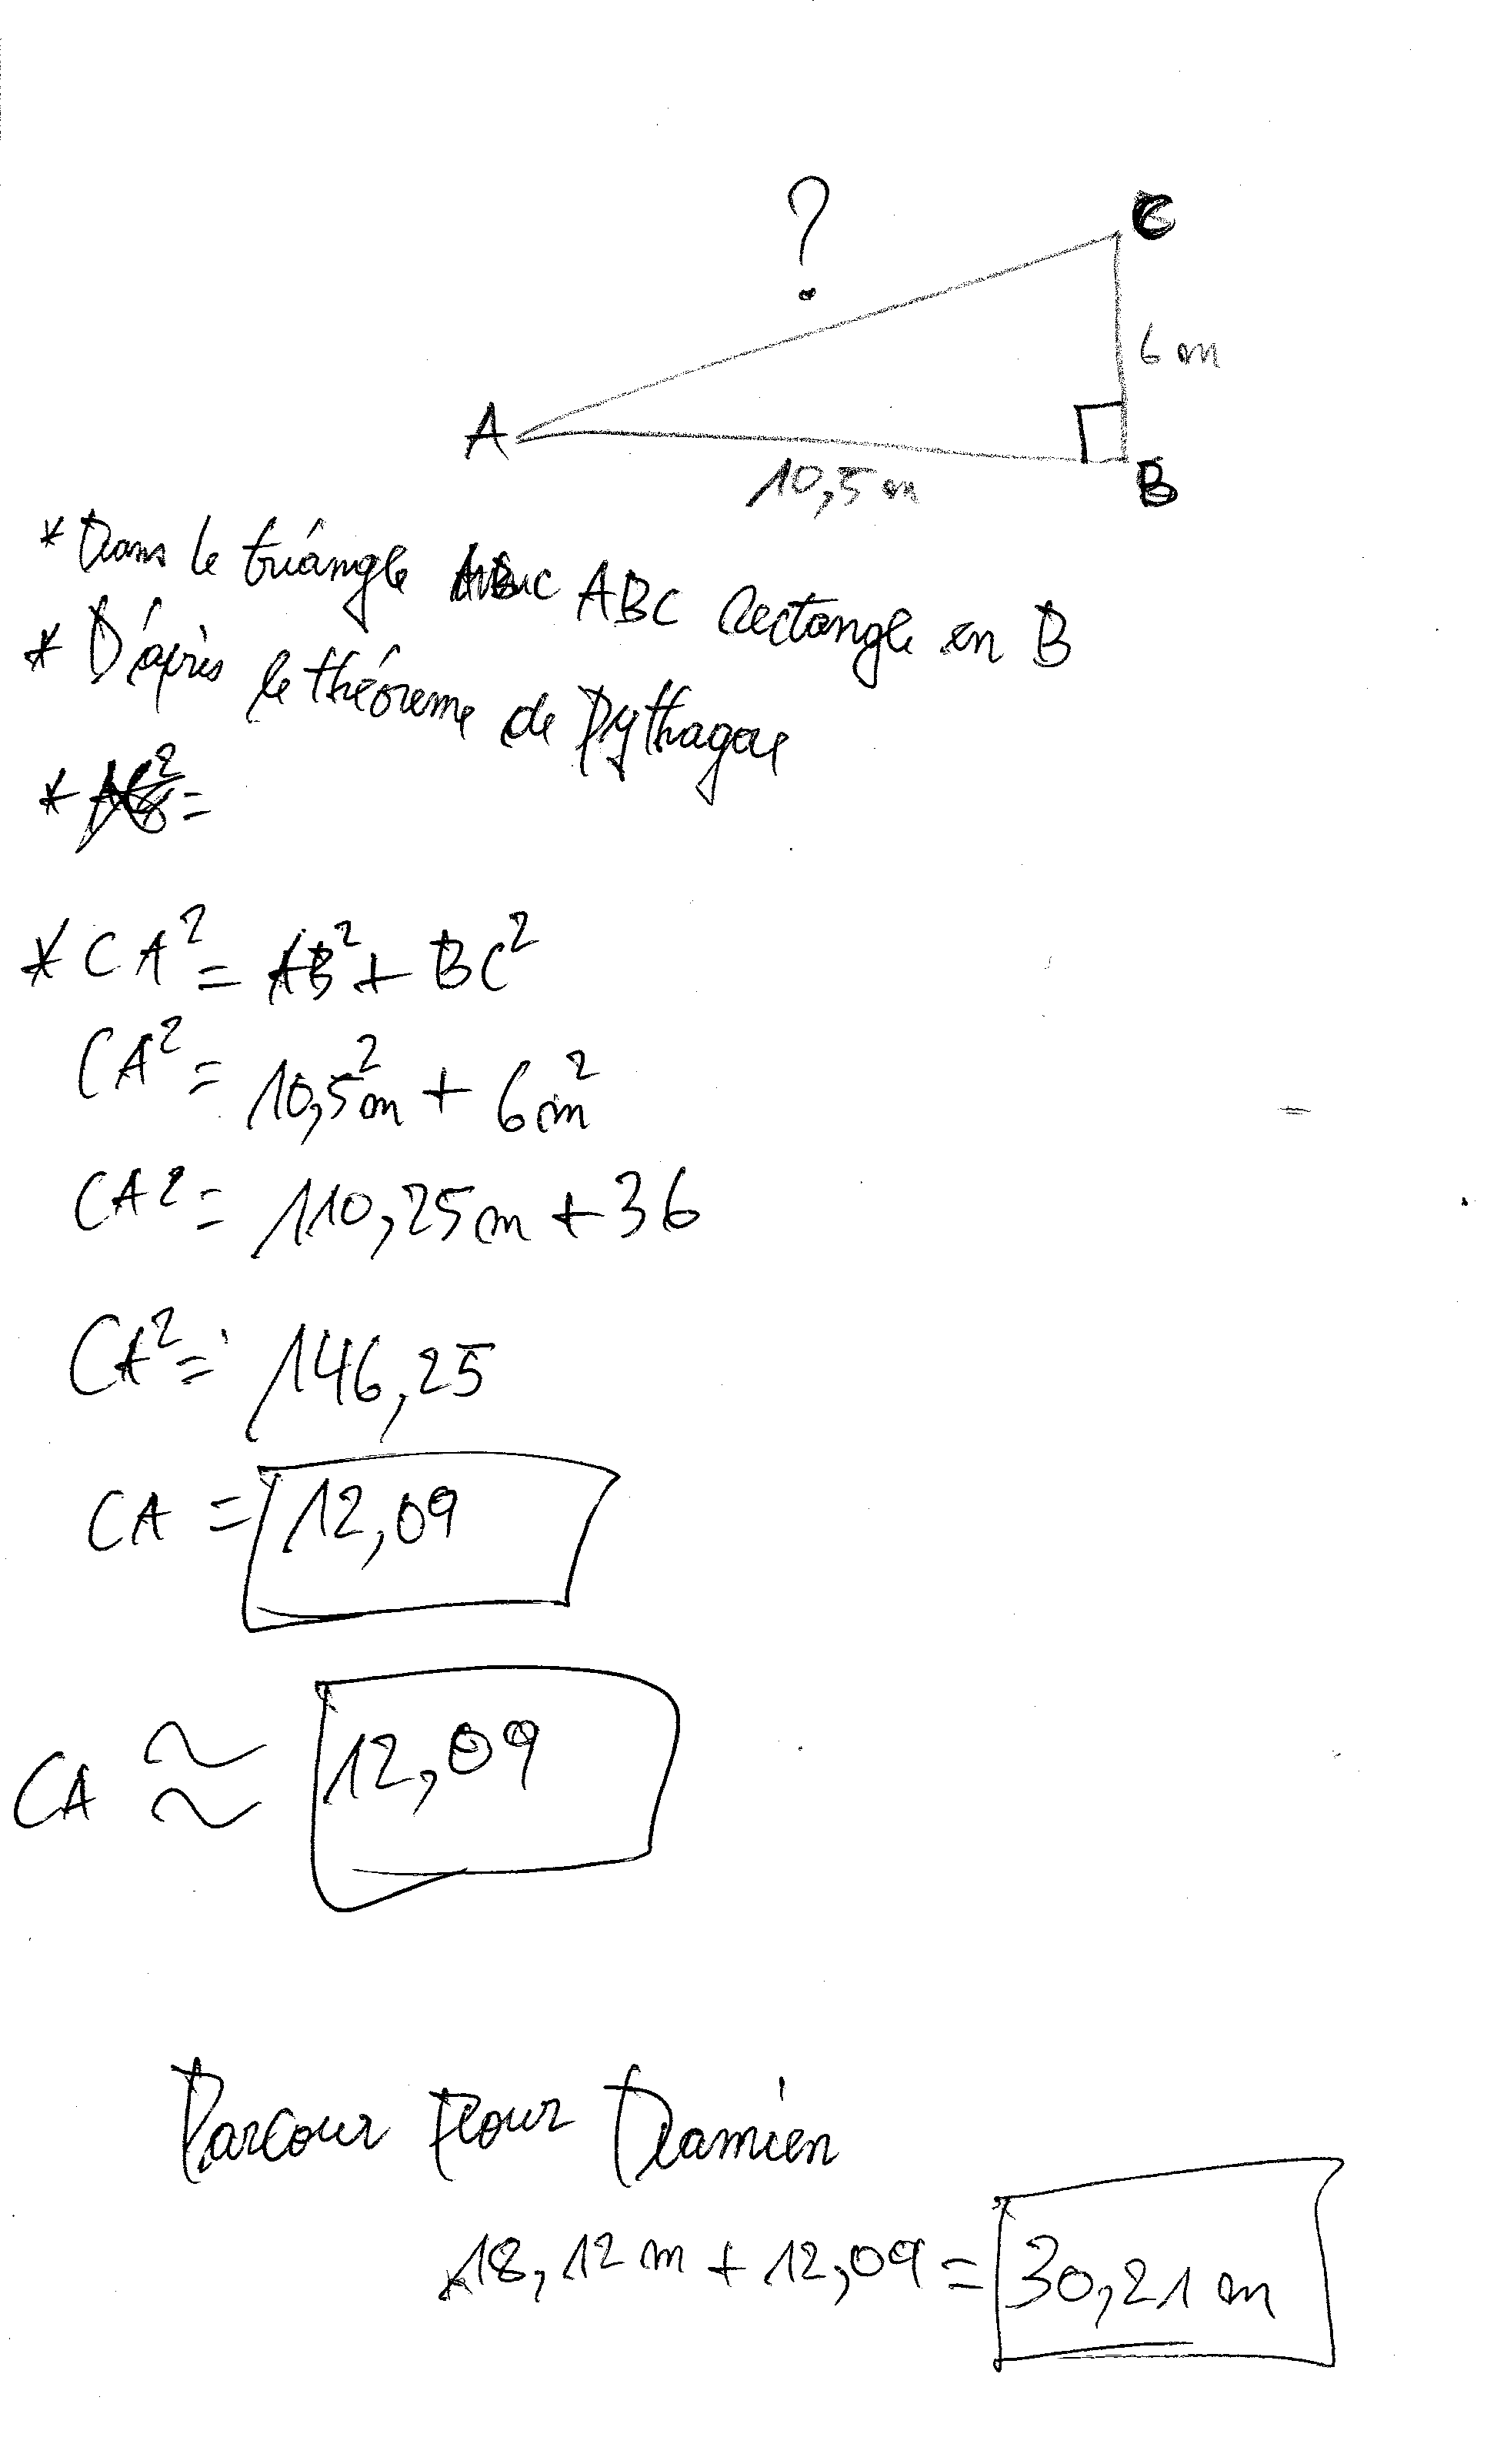 ?
C
6 m
A
10,5 m
B
* Dans le triangle ABC rectangle en B
* D'après le théoreme de Pythagore
*
=
* CA² = AB² + BC²
CA² = 10,5²m + 6m²
CA² = 110,25m + 36
CA² = 146,25
CA = 12,09
CA ≈ 12,09
Parcour Pour Damien
18,12 m + 12,09 = 30,21 m